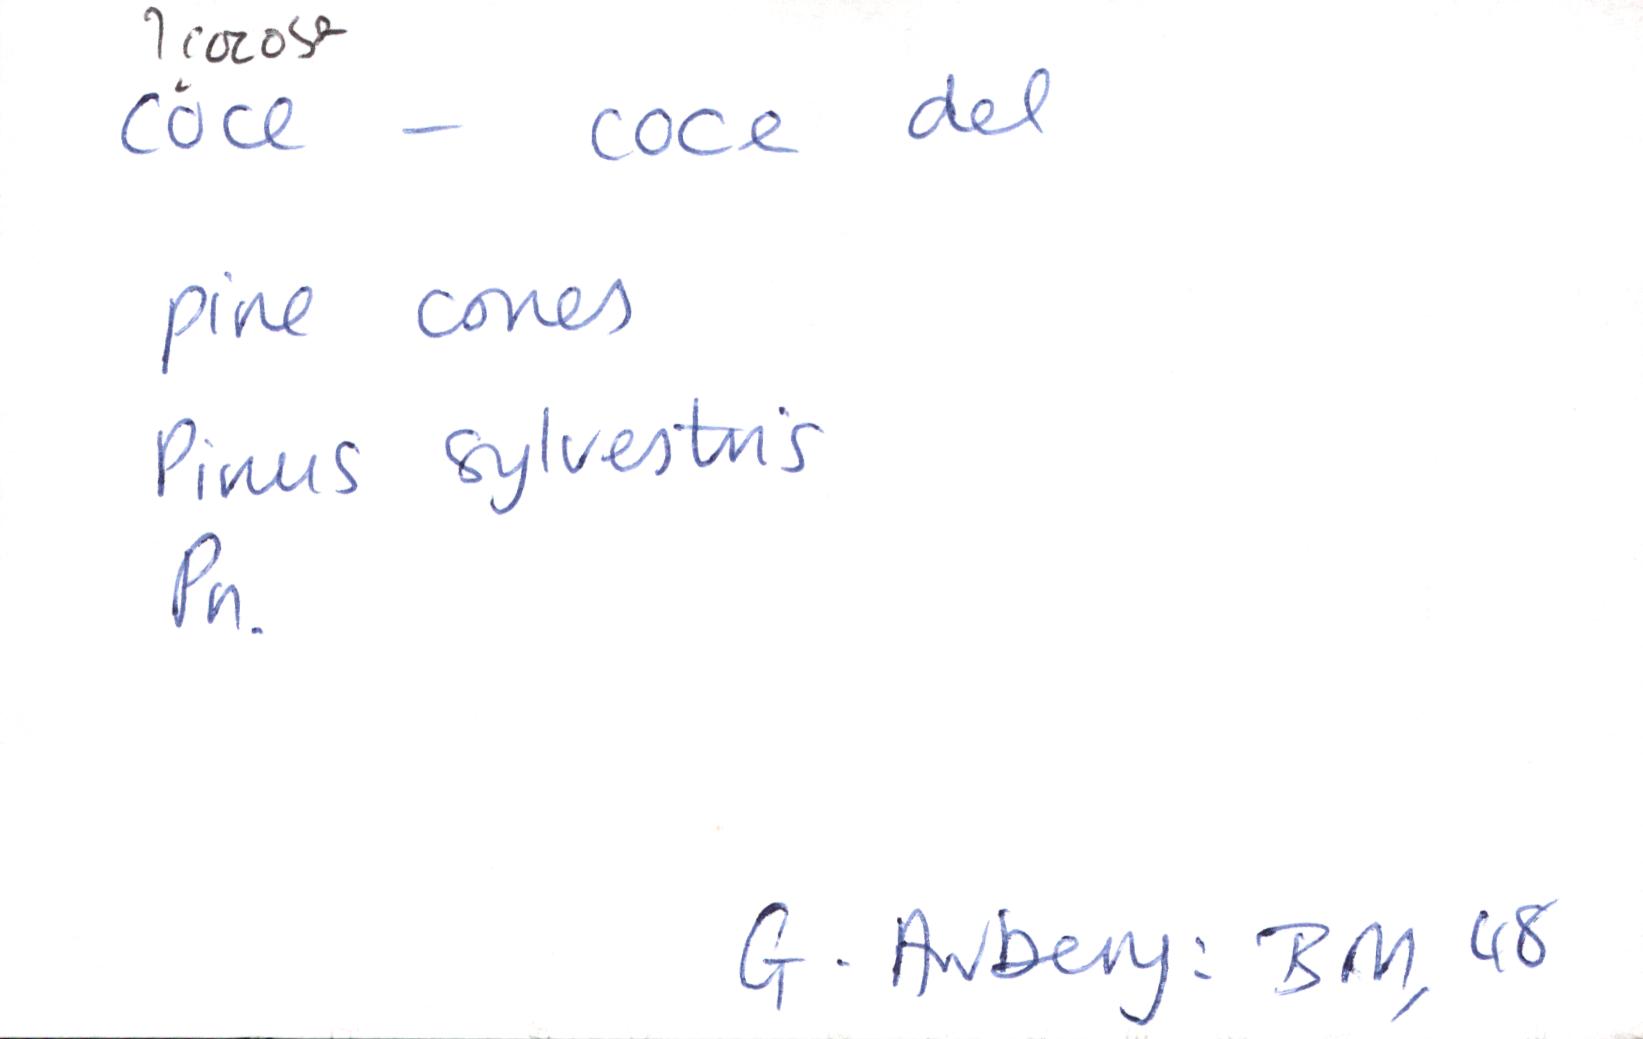 côce - coce del
pine cones
Pinus sylvestris
Pn.
G. Awbery: BM, 48